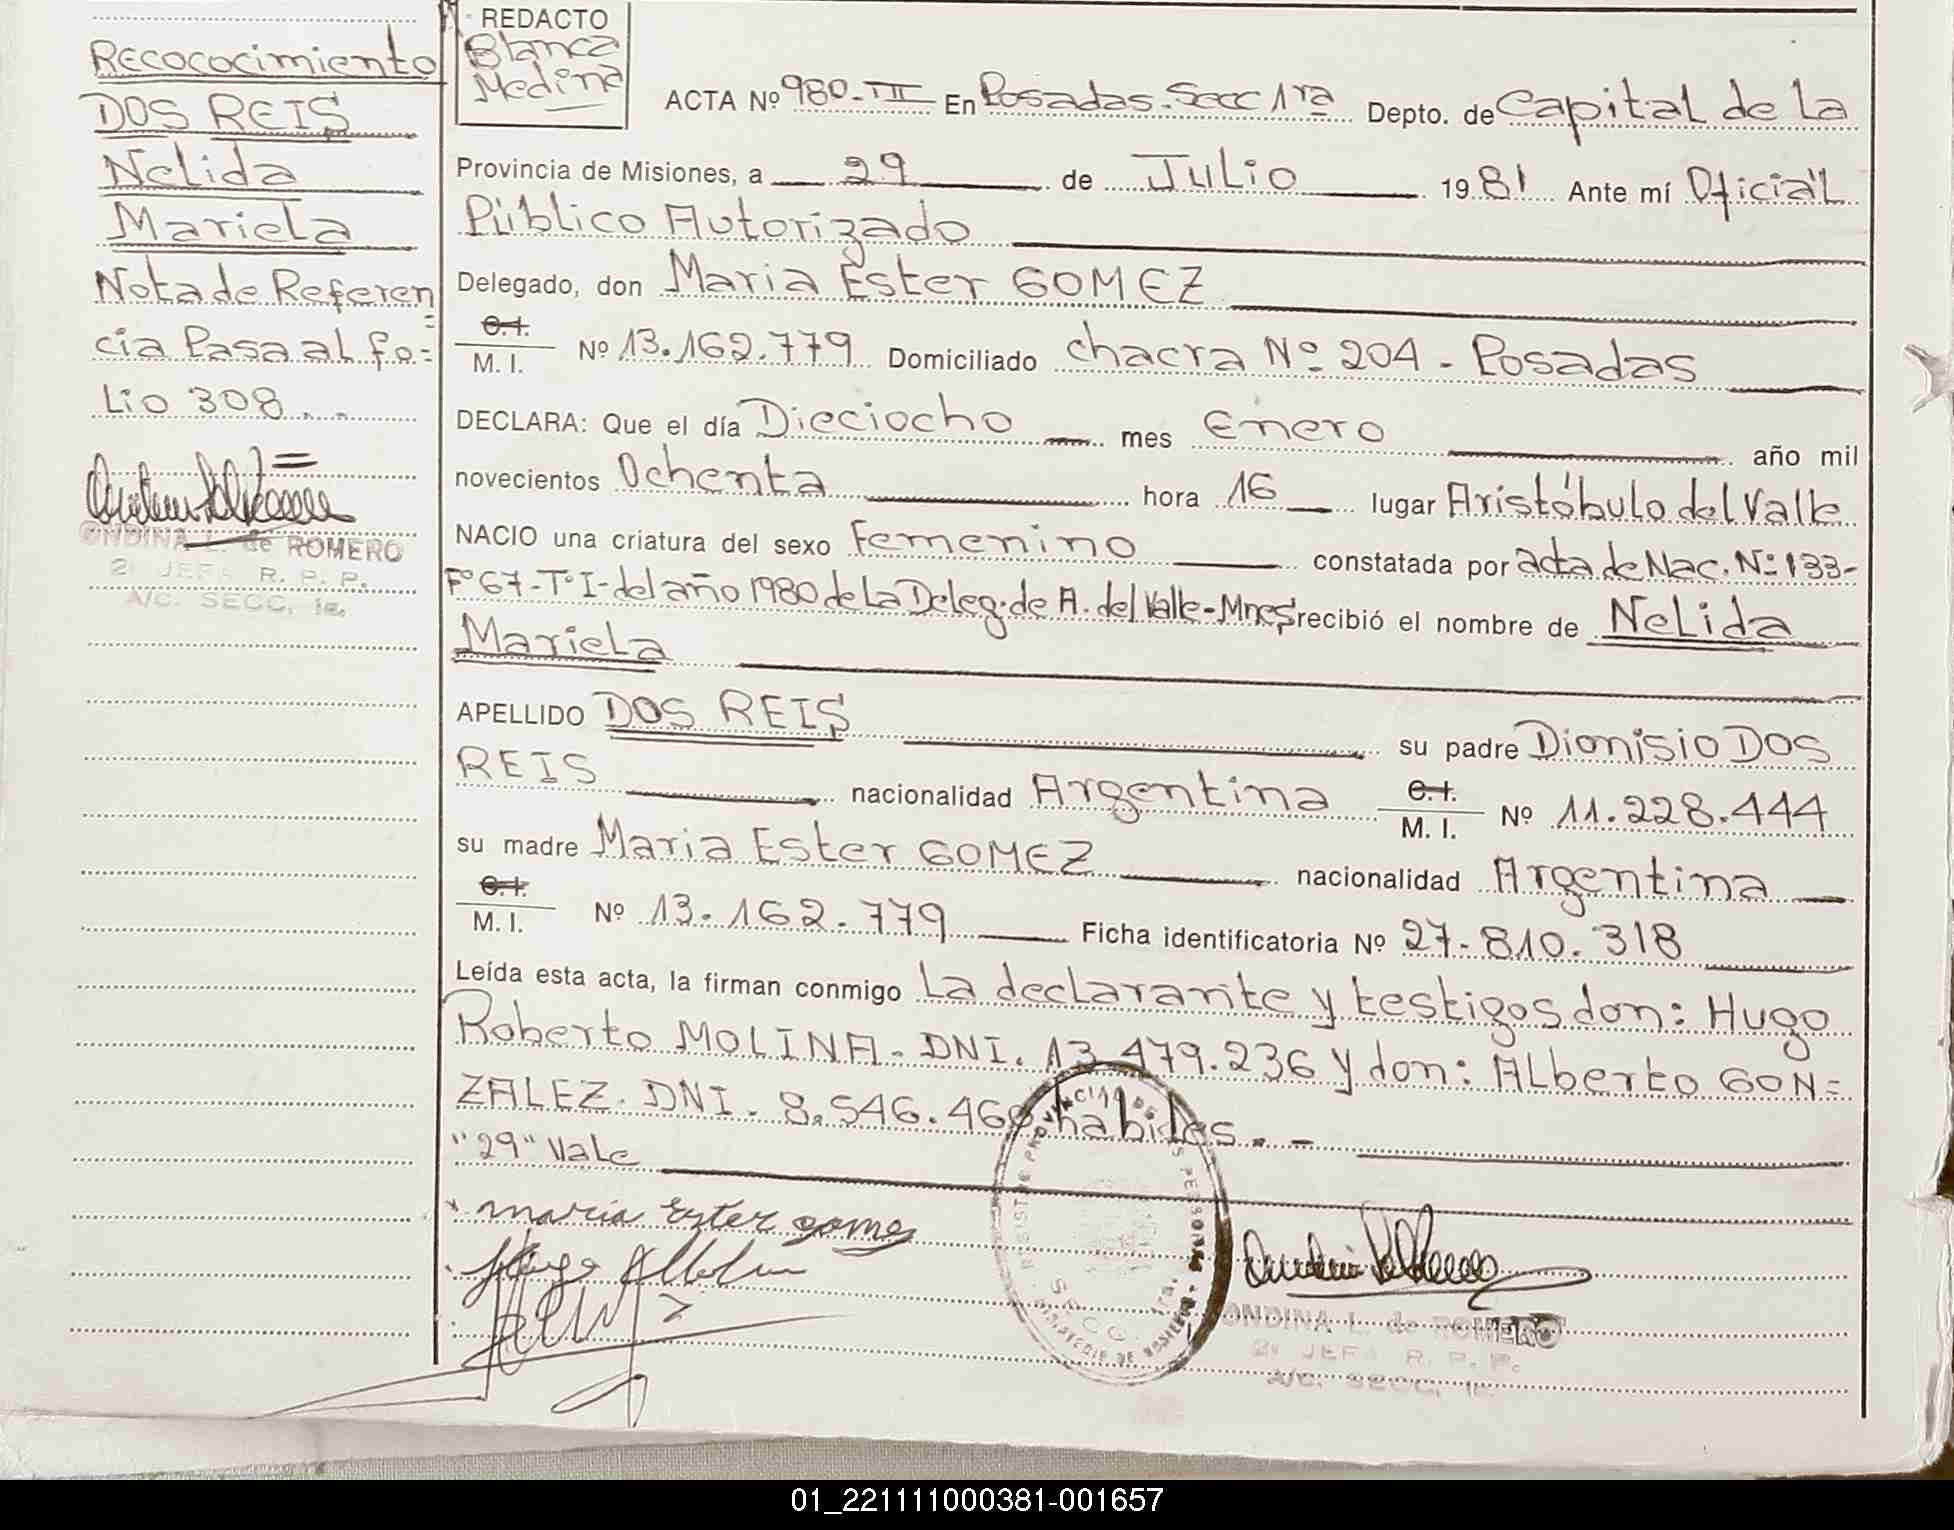 Recococimiento
DOS REIS
Nelida
Mariela
Nota de Referen
cia Pasa al fo=
Lio 308..
ONDINA L. de ROMERO
2º JEFA R. P. P.
A/C. SECC. 1a.
REDACTO
Blanca
Medina
ACTA Nº 980-III En Posadas. Secc 1ra Depto. de Capital de La
Provincia de Misiones, a 29 de Julio 1981 Ante mí Oficial
Público Autorizado
Delegado, don Maria Ester GOMEZ
C.I. / M. I. Nº 13.162.779 Domiciliado chacra Nº 204 - Posadas
DECLARA: Que el día Dieciocho mes Enero año mil
novecientos Ochenta hora 16 lugar Aristóbulo del Valle
NACIO una criatura del sexo Femenino constatada por acta de Nac. Nº 133-
Fº 67-Tº I-del año 1980 de La Deleg. de A. del Valle-Mnes recibió el nombre de Nelida
Mariela
APELLIDO DOS REIS su padre Dionisio DOS
REIS nacionalidad Argentina C.I. / M. I. Nº 11.228.444
su madre Maria Ester GOMEZ nacionalidad Argentina
C.I. / M. I. Nº 13.162.779 Ficha identificatoria Nº 27-810.318
Leída esta acta, la firman conmigo La declarante y testigos don: Hugo
Roberto MOLINA. DNI. 13.479.236 y don: Alberto GON=
ZALEZ. DNI. 8.546.460 habides. -
"29" Vale
maria Ezter gomes
PROVINCIAL DE PERSONAS
SECC. 1ra.
ONDINA L. de ROMERO
2º JEFA R. P. P.
A/C. SECC. 1a.
01_221111000381-001657